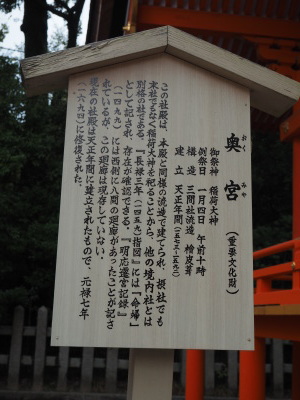 奥宮
おく
みや
(重要文化財)
御祭神 稲荷大神
例祭日 一月四日 午前十時
構造 三間社流造 檜皮葺
建立 天正年間(一五七三~一五九二)
この社殿は、本殿と同様の流造で建てられ、摂社でも
末社でもなく稲荷大神を祀ることから、他の境内社とは
別格の社である。『長禄三年(一四五九)指図』には「命婦」
として記され、存在が確認できる。『明応遷宮記録』
(一四九九)には西側に八間の廻廊があったことが記さ
れているが、この廻廊は現存していない。
現在の社殿は天正年間に建立されたもので、元禄七年
(一六九四)に修復された。